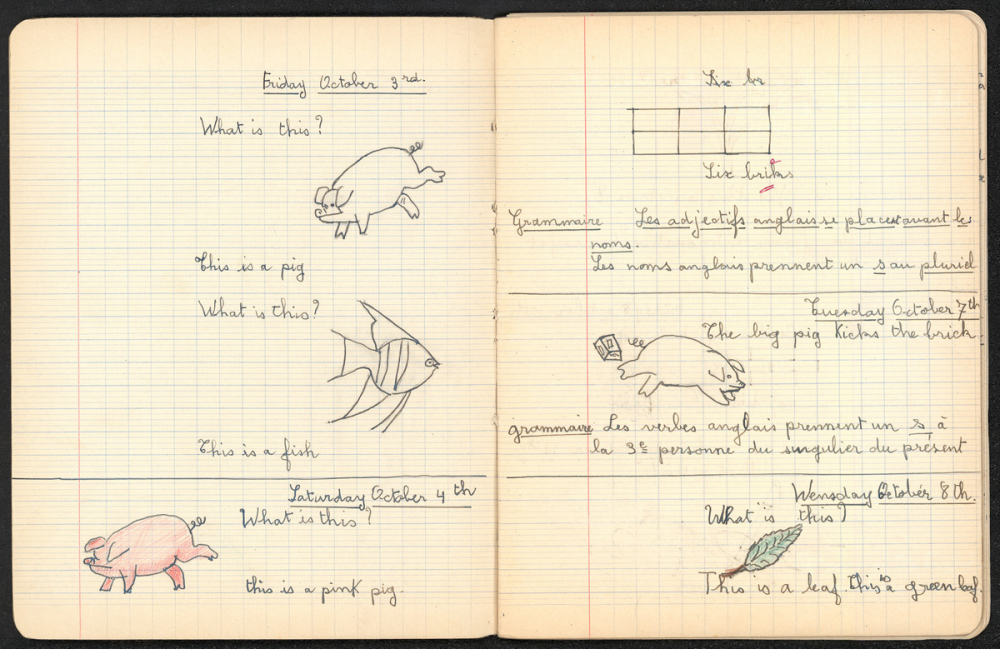 Friday October 3rd.
What is this?
This is a pig
What is this?
This is a fish
Saturday October 4th
What is this?
this is a pink pig.
Six br
Six briks
Grammaire Les adjectifs anglais se placent avant les
noms.
Les noms anglais prennent un s au pluriel
Tuesday October 7th
The big pig Kicks the brick.
grammaire Les verbes anglais prennent un s à
la 3e personne du singulier du présent
Wensday October 8th.
What is this?
This is a leaf. This is a green leaf.